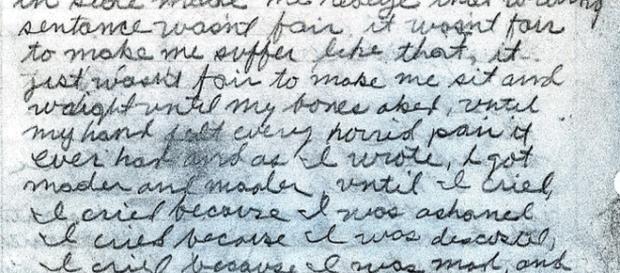 in side made me
sentance wasn't fair it wasn't fair
to make me suffer like that, it
just wasn't fair to make me sit and
waight until my bones aked, until
my hand felt every horrid pain it
ever had and as I wrote, I got
mader and mader until I cried,
I cried because I was ashamed
I cried because I was descusted,
I cried because I was mad and